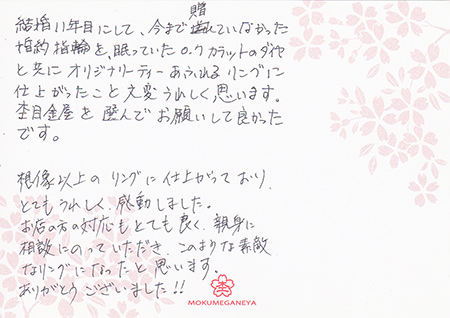 結婚11年目にして、今まで贈れていなかった
婚約指輪を、眠っていた0.9カラットのダイヤ
と共にオリジナリーティーあふれるリングに
仕上がったこと大変うれしく思います。
杢目金屋を選んでお願いして良かった
です。
想像以上のリングに仕上がっており、
とてもうれしく、感動しました。
お店の方の対応もとても良く、親身に
相談にのっていただき、このような素敵
なリングになったと思います。
ありがとうございました!!
MOKUMEGANEYA